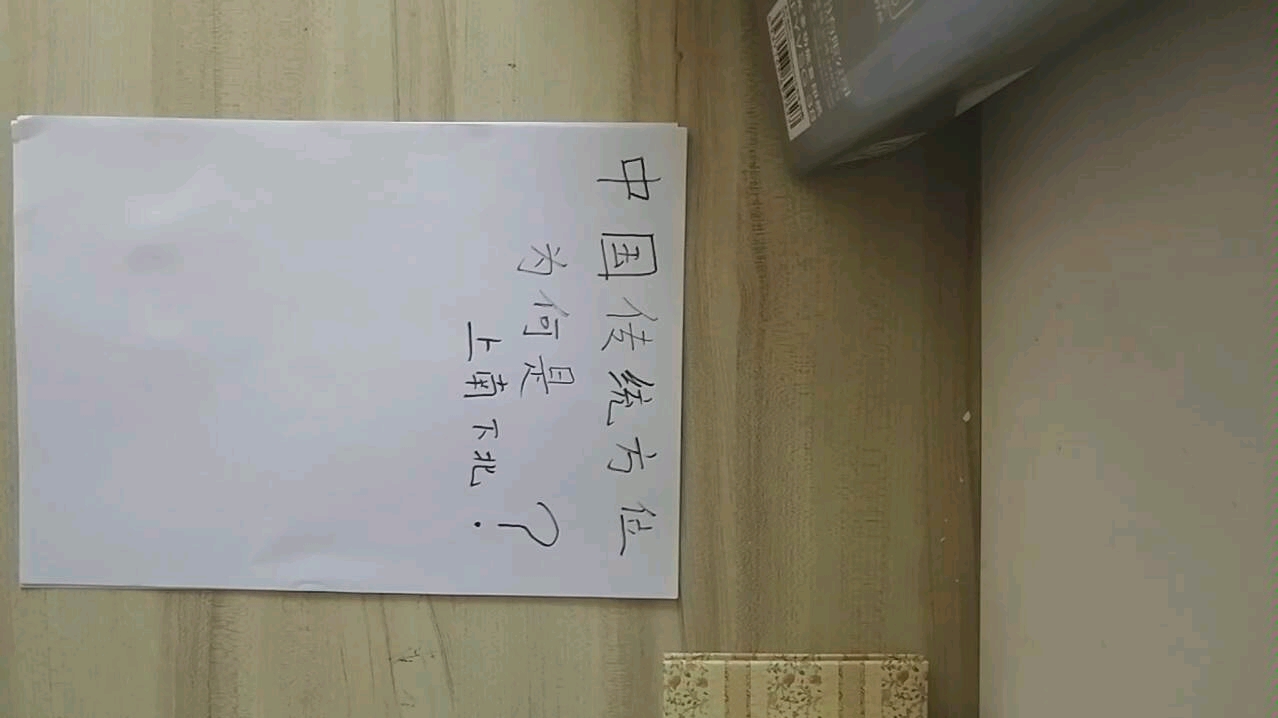 中国传统方位
为何是
上南下北?